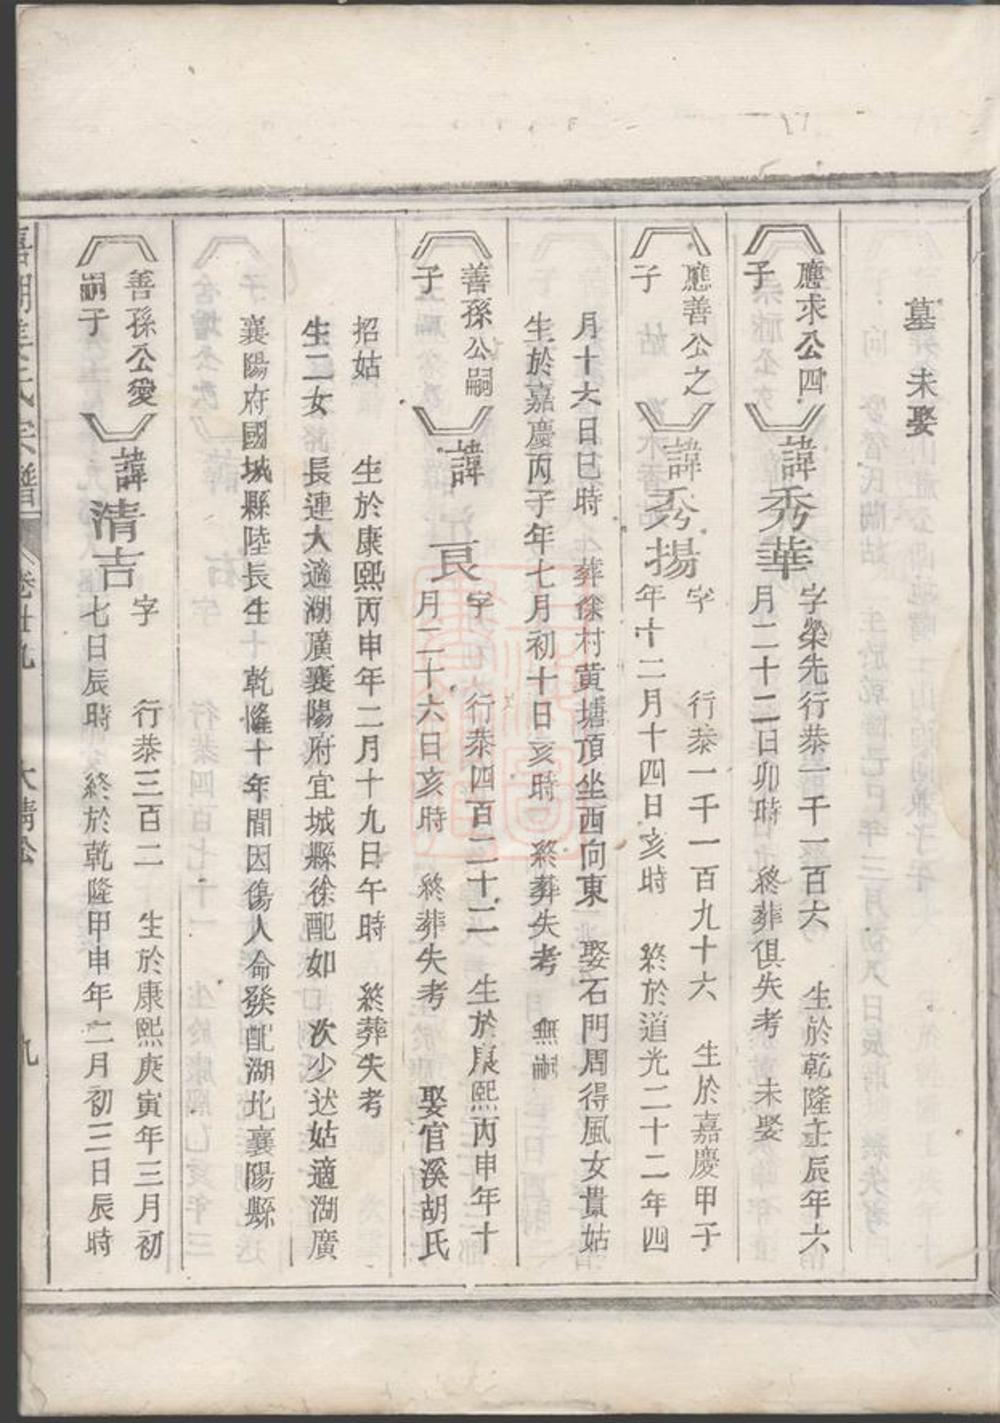 墓　未娶
應求公四
子
諱秀華
字榮先行恭一千一百六　生於乾隆壬辰年六
月二十二日卯時　終葬俱失考　未娶
應善公之
子
諱秀揚
字　行恭一千一百九十六　生於嘉慶甲子
年十二月十四日亥時　終於道光二十二年四
月十六日巳時　葬徐村黃塘頂坐西向東　娶石門周得風女貴姑
生於嘉慶丙子年七月初十日亥時　終葬失考　無嗣
善孫公嗣
子
諱良
字　行恭四百二十二　生於康熙丙申年十
月二十六日亥時　終葬失考　娶官溪胡氏
招姑　生於康熙丙申年二月十九日午時　終葬失考
生二女　長連大適湖廣襄陽府宜城縣徐配如　次少达姑適湖廣
襄陽府國城縣陸長生　乾隆十年間因傷人命發配湖北襄陽縣
善孫公愛
嗣子
諱清吉
字　行恭三百二　生於康熙庚寅年三月初
七日辰時　終於乾隆甲申年二月初三日辰時